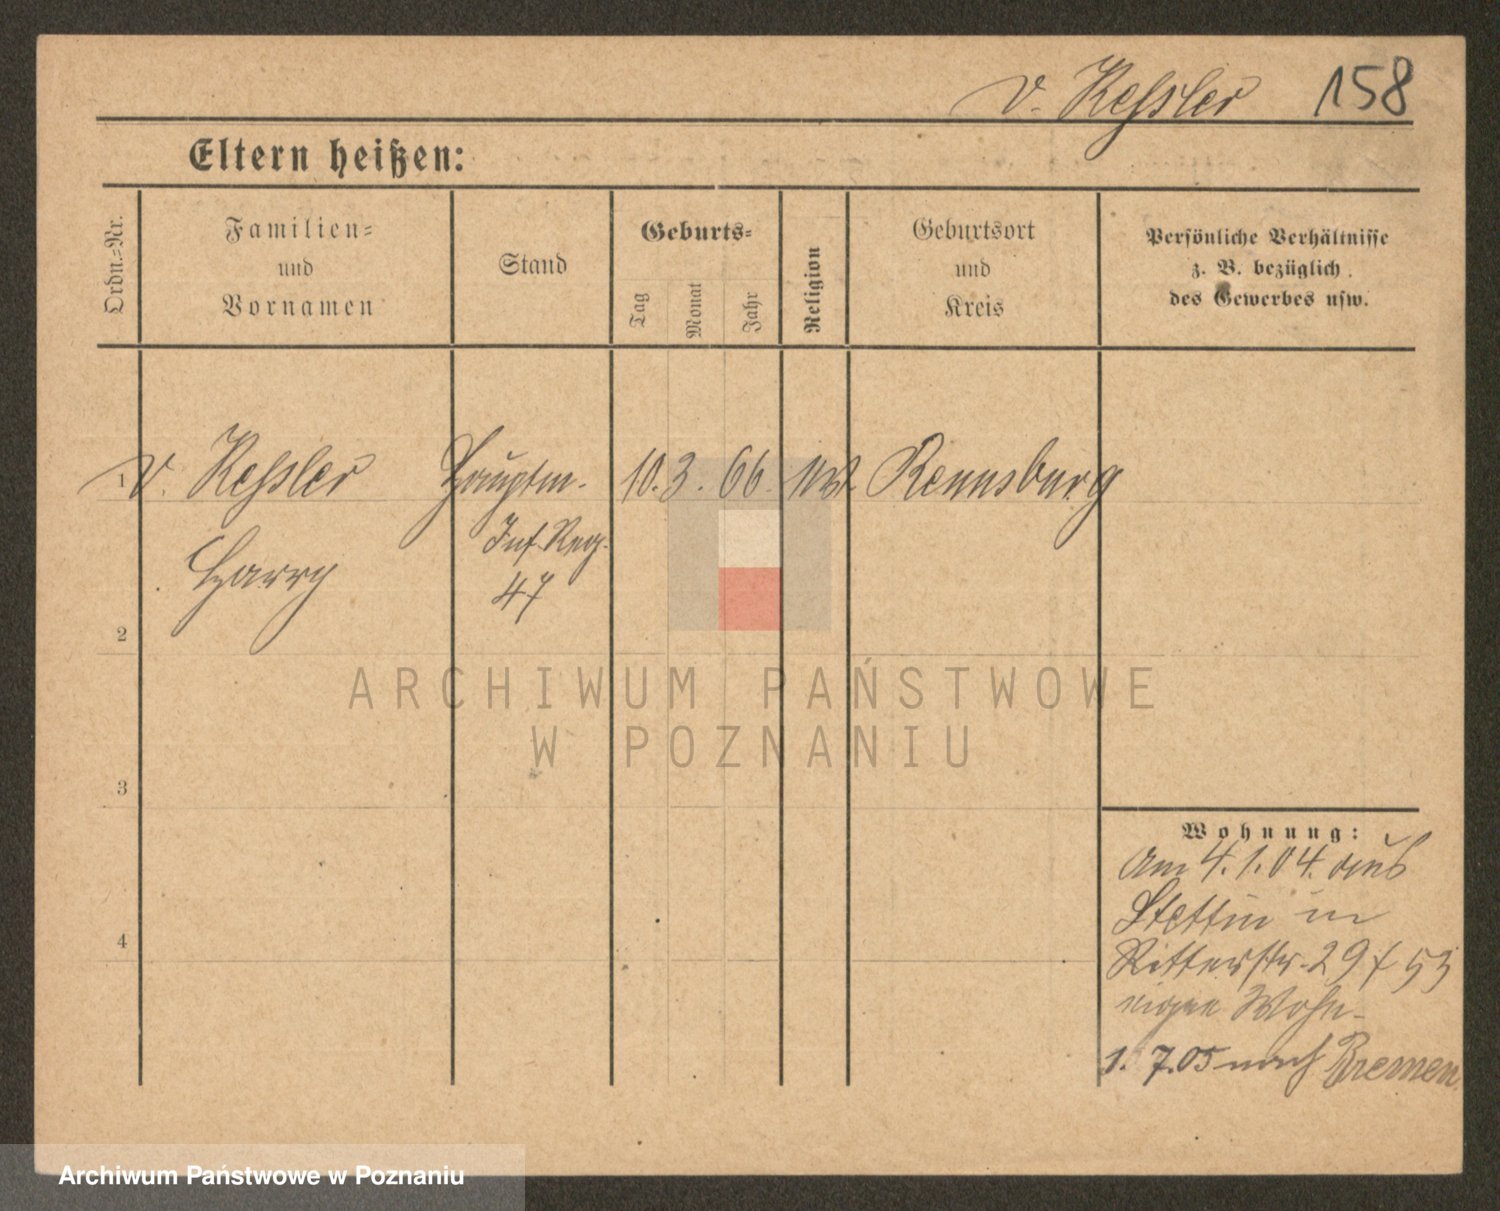 v. Kessler 158
Eltern heißen:
Ordn.-Nr.
Familien-
und
Vornamen
Stand
Geburts-
Tag
Monat
Jahr
Religion
Geburtsort
und
Kreis
Persönliche Verhältnisse
z. B. bezüglich
des Gewerbes usw.
1 v. Kessler Hauptm. 10. 3. 66. Rennsburg
Harry Inf. Reg.
47
2
3
4
ARCHIWUM PAŃSTWOWE
W POZNANIU
Wohnung:
Am 4.1.04. aus
Stettin in
Ritterstr. 29
eigene Wohn.
1. 7.05 nach Bremen
Archiwum Państwowe w Poznaniu